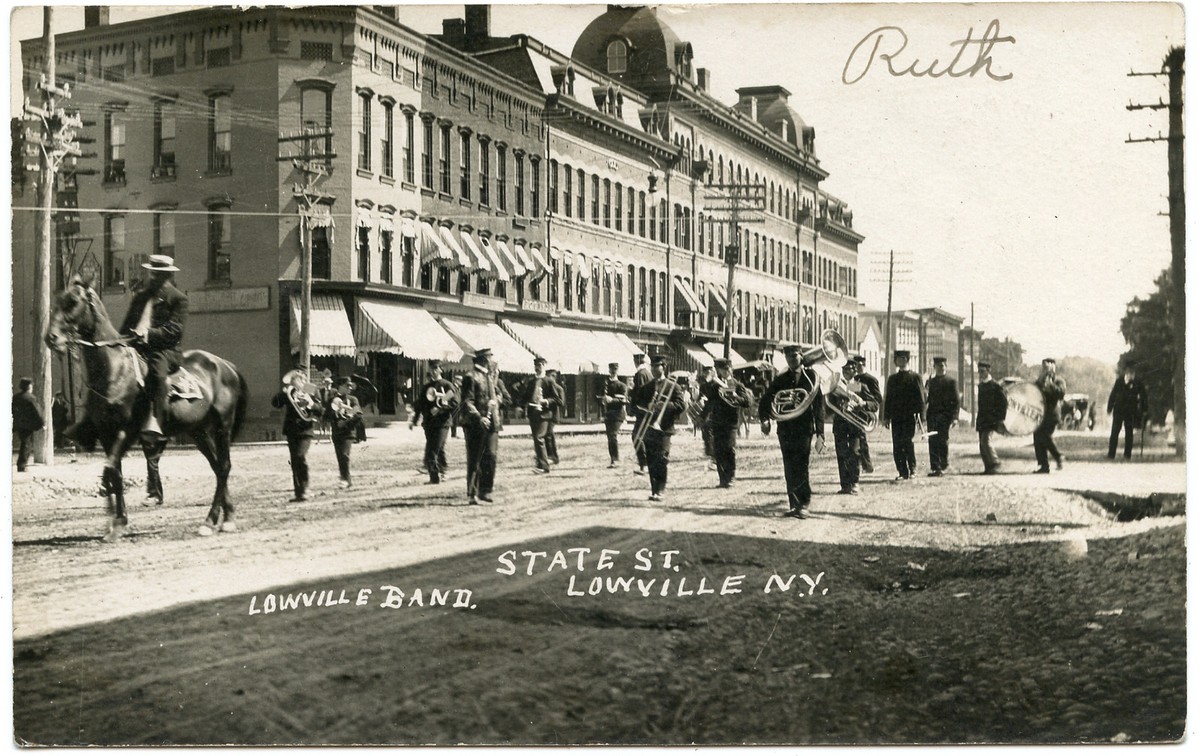 Ruth
STATE ST.
LOWVILLE N.Y.
LOWVILLE BAND.